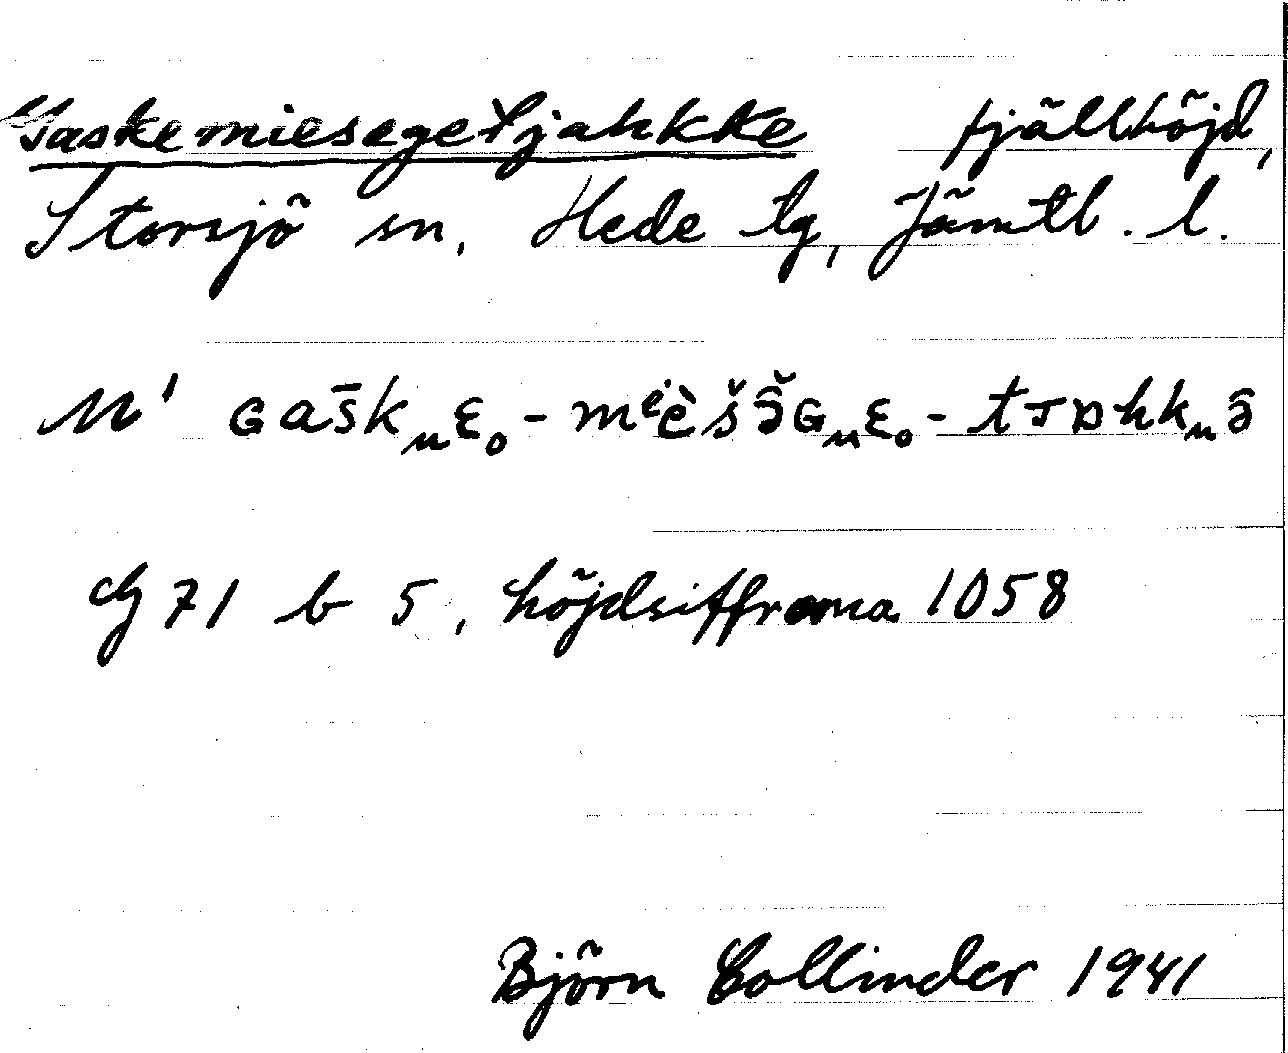 Gaskemiesegetjahkke fjällhöjd,
Storsjö sn, Hede tg, Jämtl. l.
N' ɢas̄kₙɛₒ-mᵉèšə̑̌ɢₙɛₒ-tᴊᴅhkₙə̑
cfg 71 b 5, höjdsiffrorna 1058
Björn Collinder 1941